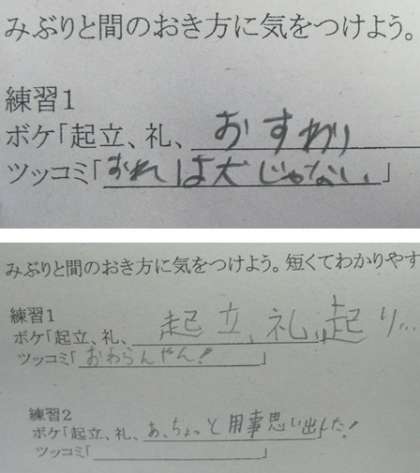 みぶりと間のおき方に気をつけよう。
練習1
ボケ「起立、礼、おすわり
ツッコミ「おれは犬じゃない」
みぶりと間のおき方に気をつけよう。短くてわかりやす
練習1
ボケ「起立、礼、起立、礼、起り...
ツッコミ「おわらんやん!」
練習2
ボケ「起立、礼、あ、ちょっと用事思い出した!
ツッコミ「　　　　　」